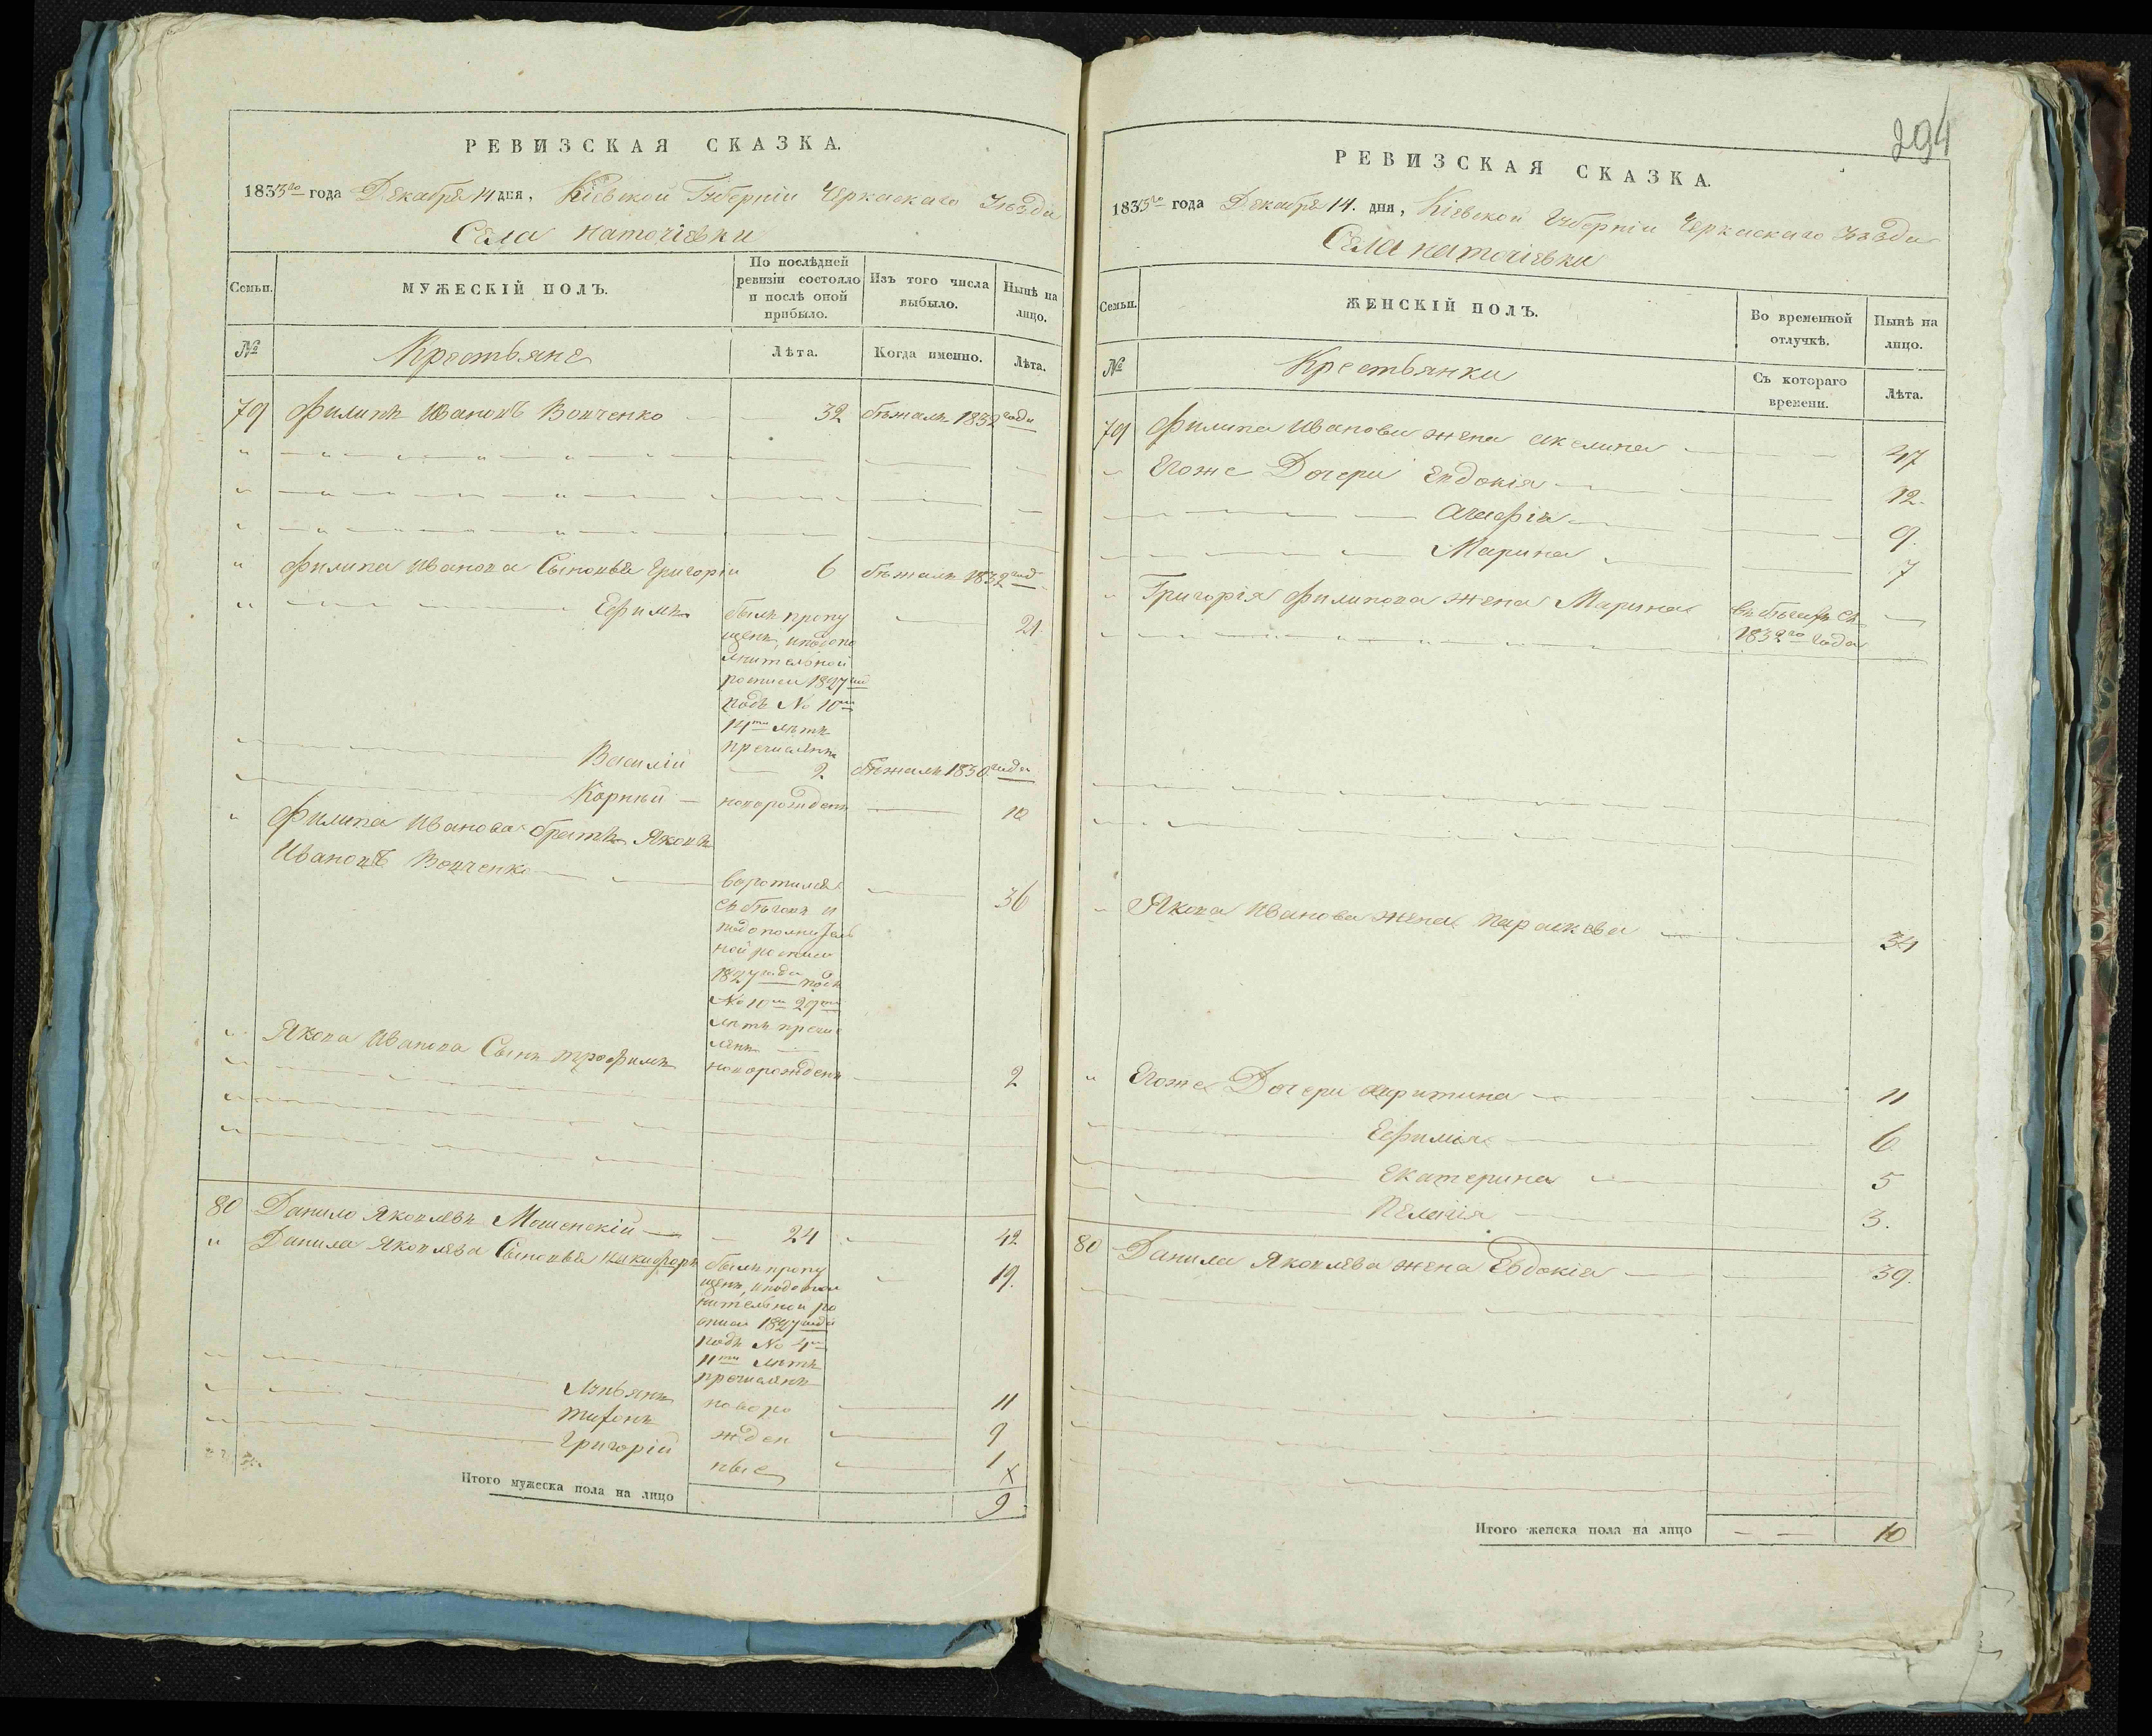 РЕВИЗСКАЯ СКАЗКА.
1833го года Декабря 14 дня, Кіевской Губерніи Черкаскаго Уѣзда
Села Наточіевки
Семьи.
МУЖЕСКІЙ ПОЛЪ.
По послѣдней ревизіи состояло и послѣ оной прибыло.
Изъ того числа выбыло.
Нынѣ на лицо.
№
Крестьяне
Лѣта.
Когда именно.
Лѣта.
79 Филипъ Ивановъ Вовченко 32 бѣжалъ 1832 года
" Филипа Иванова Сыновья Григорій 6 бѣжалъ 1832 год
" Ефимъ былъ пропу 21.
щенъ, и по допо
лнительной
росписи 1827 год
подъ № 10м
14ти лѣтъ
причисленъ
Василій 2 бѣжалъ 1830 года
Корній новорожденъ 10
" Филипа Иванова братъ Яковъ
Ивановъ Вовченко
воротился 36
съ бѣговъ и
по дополнитель
ной росписи
1827 года подъ
№ 10м 29ти
лѣтъ причис
ленъ
" Якова Иванова Сынъ Трофимъ новорожденъ 2
80 Данило Яковлевъ Мошенскій 24 42
" Данила Яковлева Сыновья Никифоръ былъ пропу 19.
щенъ, и по допол
нительной ро
списи 1827 года
подъ № 4м
11ти лѣтъ
причисленъ
Лукьянъ новоро 11
Тифонъ жден 9
Григорій ные 1
Итого мужеска пола на лицо 9
294
РЕВИЗСКАЯ СКАЗКА.
1833го года Декабря 14. дня, Кіевской Губерніи Черкаскаго Уѣзда
Села Наточіевки
Семьи.
ЖЕНСКІЙ ПОЛЪ.
Во временной отлучкѣ.
Нынѣ на лицо.
№
Крестьянки
Съ котораго времени.
Лѣта.
79 Филипа Иванова жена Акелина 47
" Егоже Дочери Евдокія 12.
Агафія 9.
Марина 7
" Григорія Филипова жена Марина въ бѣгахъ съ
1832го года
" Якова Иванова жена Параскева 34
" Егоже Дочери 11
Ефимія 6
Екатерина 5
Пелагія 3.
80 Данила Яковлева жена Евдокія 39.
Итого женска пола на лицо 10